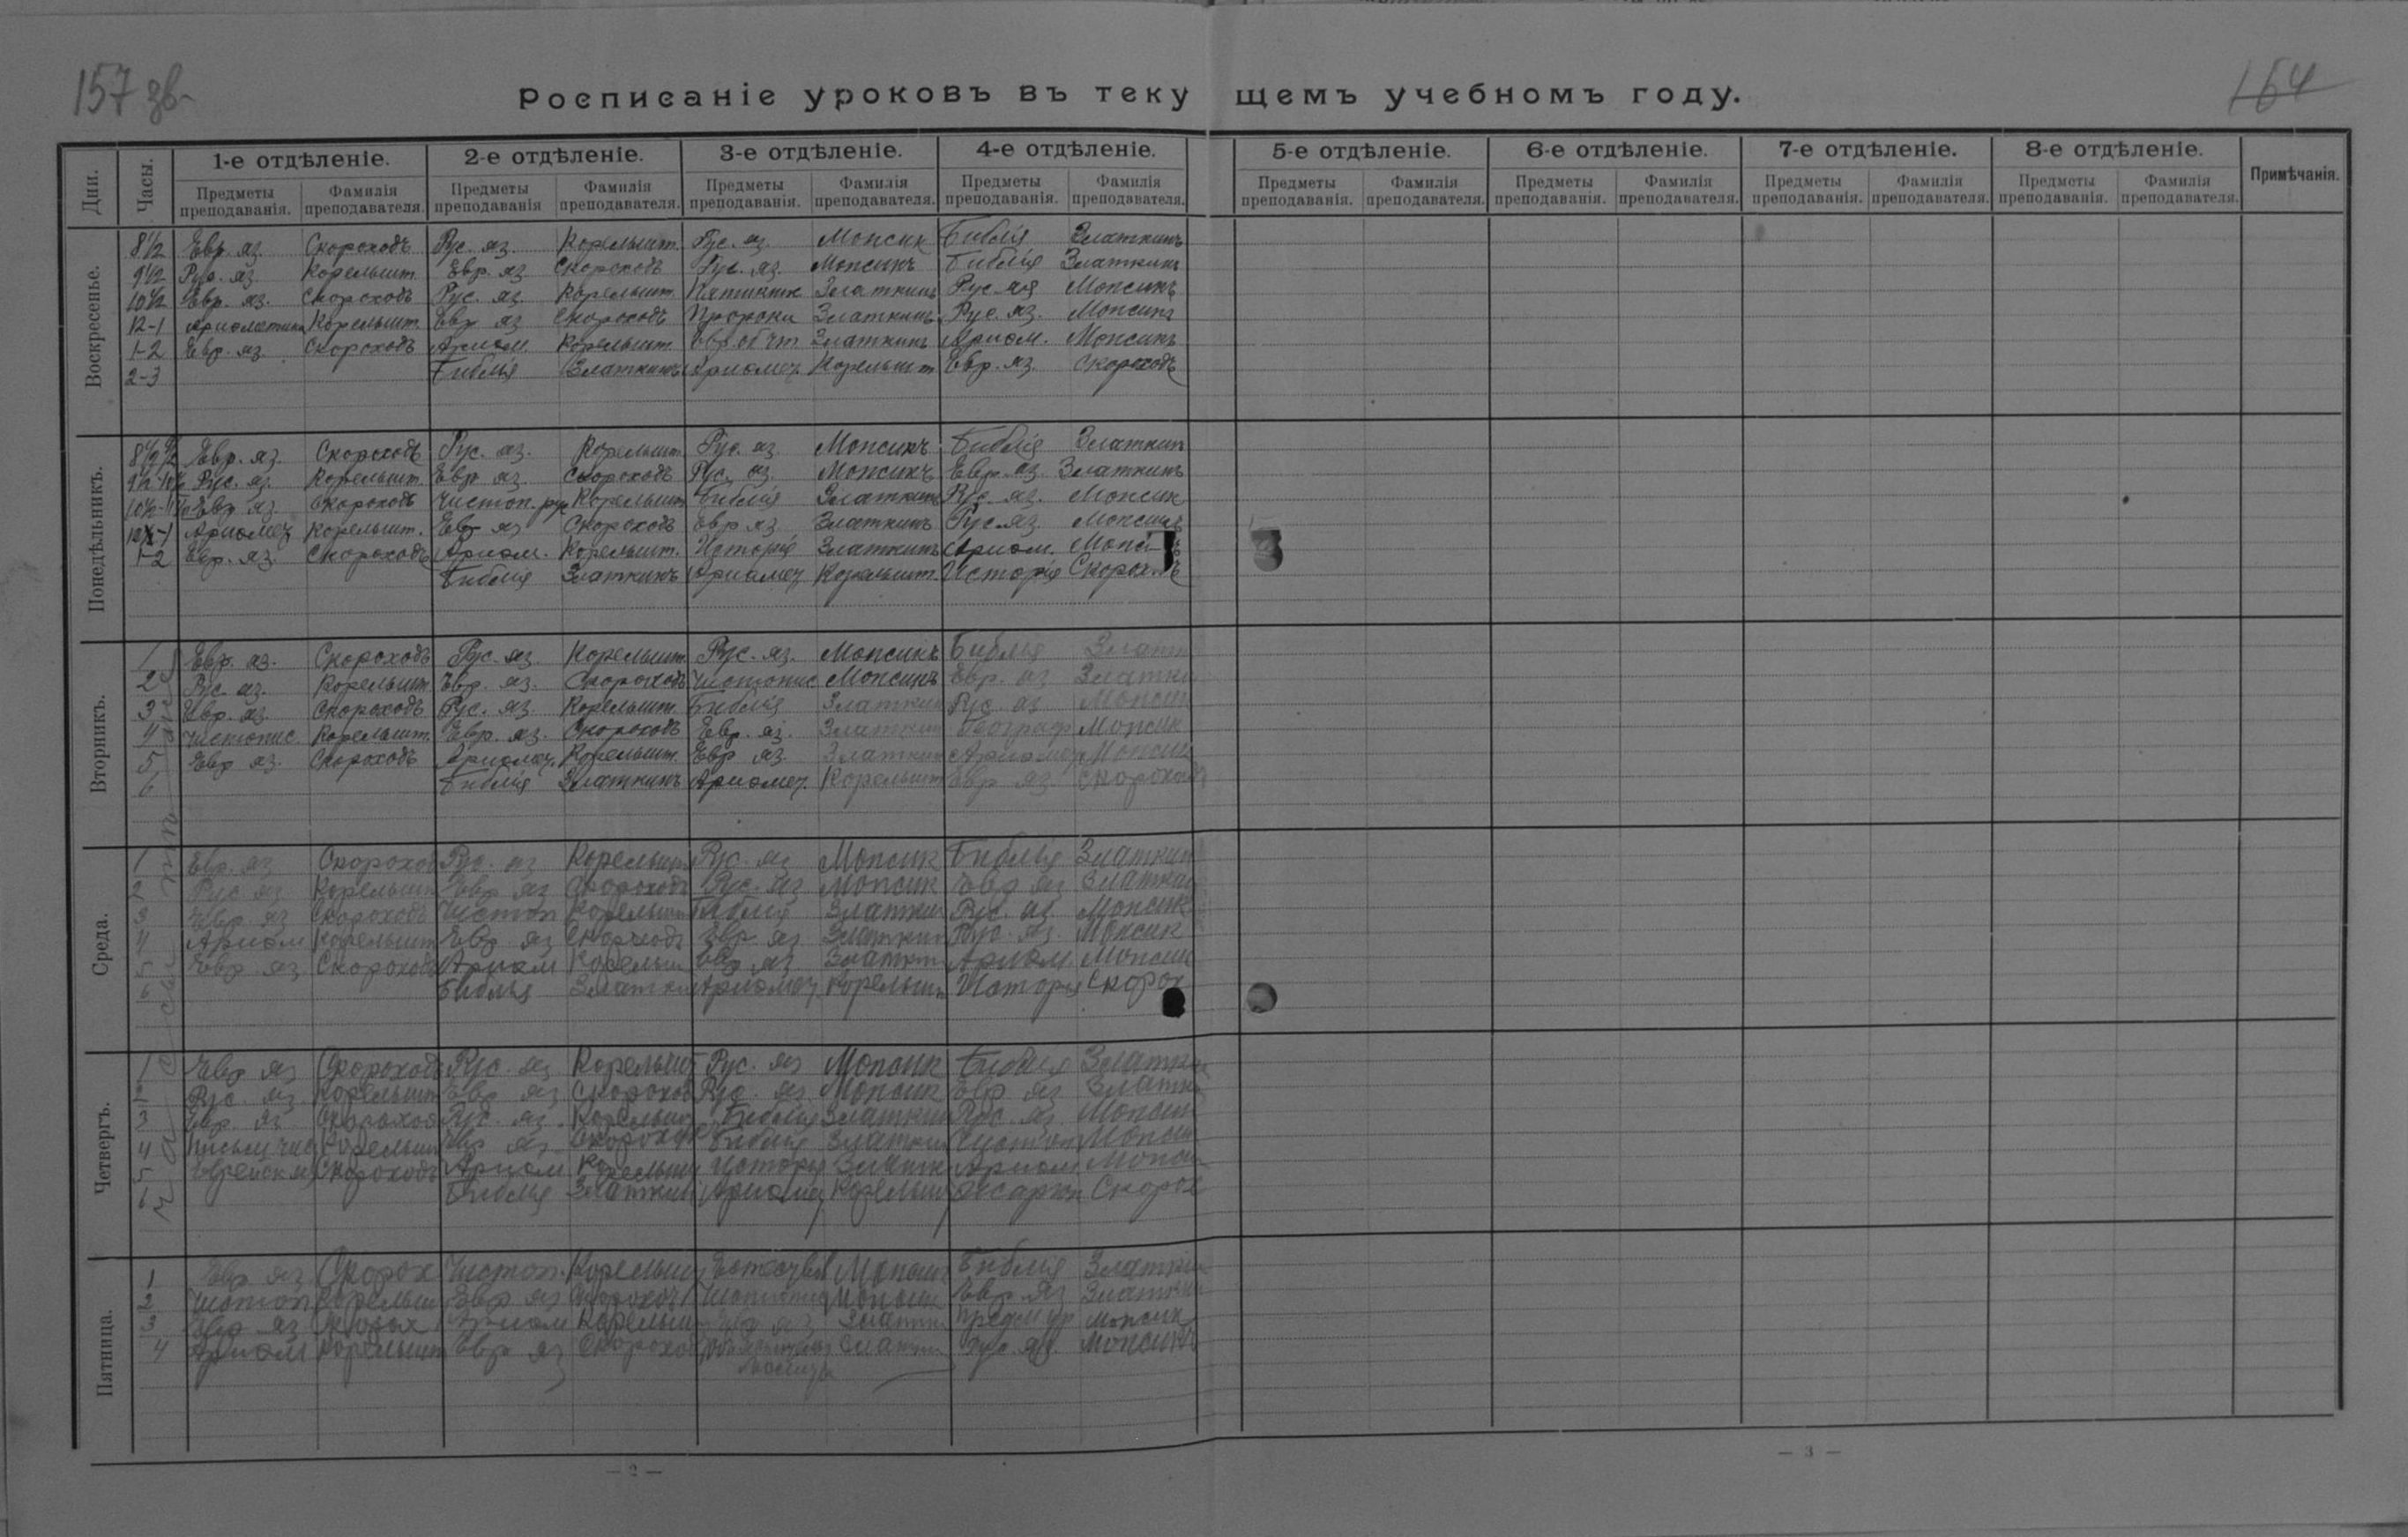 157 зв-
164
Росписаніе уроковъ въ текущемъ учебномъ году.
Дни. Часы. 1-е отдѣленіе. 2-е отдѣленіе. 3-е отдѣленіе. 4-е отдѣленіе. 5-е отдѣленіе. 6-е отдѣленіе. 7-е отдѣленіе. 8-е отдѣленіе. Примѣчанія.
Предметы преподаванія. Фамилія преподавателя. Предметы преподаванія Фамилія преподавателя. Предметы преподаванія. Фамилія преподавателя. Предметы преподаванія. Фамилія преподавателя. Предметы преподаванія. Фамилія преподавателя. Предметы преподаванія. Фамилія преподавателя. Предметы преподаванія. Фамилія преподавателя. Предметы преподаванія. Фамилія преподавателя.
Воскресенье.
8½ Евр. яз. Скороходъ Рус. яз. Корельшт. Рус. яз. Мопсик Библія Златкинъ
9½ Рус. яз. Корельшт. Евр. яз Скороходъ Рус. яз. Мопсикъ Библія Златкинъ
10½ Евр. яз. Скороходъ Рус. яз. Корельшт. Златкинъ Рус. яз Мопсикъ
12-1 Ариѳметика Корельшт. Евр яз Скороходъ Пророки Златкинъ Рус. яз. Мопсикъ
1-2 Евр. яз. Скороходъ Ариѳм. Корельшт. Златкинъ Ариѳм. Мопсикъ
2-3 Библія Златкинъ Ариѳмет. Корельшт Евр. яз. Скороходъ
Понедѣльникъ.
Евр. яз. Скороходъ Рус. яз. Корельшт. Рус. яз Мопсикъ Библія Златкин
Рус. яз. Корельшт. Евр яз. Скороходъ Рус. яз. Мопсикъ Евр. яз. Златкинъ
Евр яз. Скороходъ Чистоп. рус Корельшт Библія Златкинъ Рус. яз. Мопсик
Ариѳмет Корельшт. Евр яз Скороходъ Евр яз Златкинъ Рус. яз Мопсикъ
1-2 Евр. яз. Скороходъ Ариѳм. Корельшт. Исторія Златкинъ Ариѳм.
Библія Златкинъ Ариѳмет Корельшт. Исторія
Вторникъ.
1 Евр. яз. Скороходъ Рус. яз. Корельшт. Рус. яз. Мопсикъ Библія Златк
2 Рус яз. Корельшт. Евр. яз. Скороходъ Чистопис Мопсикъ Евр. яз Златки
3 Евр. яз. Скороходъ Рус. яз. Корельшт. Библія Златкин Рус яз Мопсик
4 Чистопис Корельшт. Евр. яз. Скороходъ Евр. яз. Златкин Географ Мопсик
5 Евр яз. Скороходъ Ариѳмет. Корельшт. Евр яз. Златкин Ариѳмет Мопсик
6 Библія Златкинъ Ариѳмет. Корельшт Евр яз. Скороходъ
Среда.
1 Евр. яз Скороход Рус. яз Корельшт Рус. яз Мопсик Библія Златкин
2 Рус яз Корельшт Евр яз Скороходъ Рус. яз Мопсик Евр яз Златкин
3 Евр. яз Скороходъ Чистоп Корельшт Библія Златкин Рус. яз. Мопсик
4 Ариѳм Корельшт Евр яз Скороходъ Евр яз Златкин Рус. яз. Мопсик
5 Евр яз Скороходъ Ариѳм Корельш Евр яз Златкин Ариѳм Мопсик
6 Библія Златкин Ариѳмет Корельшт Исторія Скорох
Четвергъ.
1 Евр яз Скороходъ Рус. яз Корельшт Рус. яз Мопсик Библія Златкин
2 Рус. яз Корельшт Евр яз Скороход Рус. яз Мопсик Евр яз Златки
3 Евр яз Скороход Рус. яз. Корельшт Библія Златкин Рус. яз Мопсик
4 Корельшт Евр яз Скороход Библія Златкин Чистоп Мопсик
5 Еврейск яз Скороходъ Ариѳм Корельшт Исторія Златк Ариѳм Мопси
6 Библія Златкин Ариѳмет Корельшт Скорох
Пятница.
1 Евр яз Скорох Чистоп. Корельшт Мопсик Библія Златкин
2 Чистоп Корельшт Евр яз Скороход Чистопис Мопсик Евр яз Златкин
3 Евр яз Скорох Ариѳм Корельшт Евр яз Златкин Мопсик
4 Ариѳм Корельшт Евр яз Скороход Златкин Рус. яз. Мопсикъ
— 2 —
— 3 —